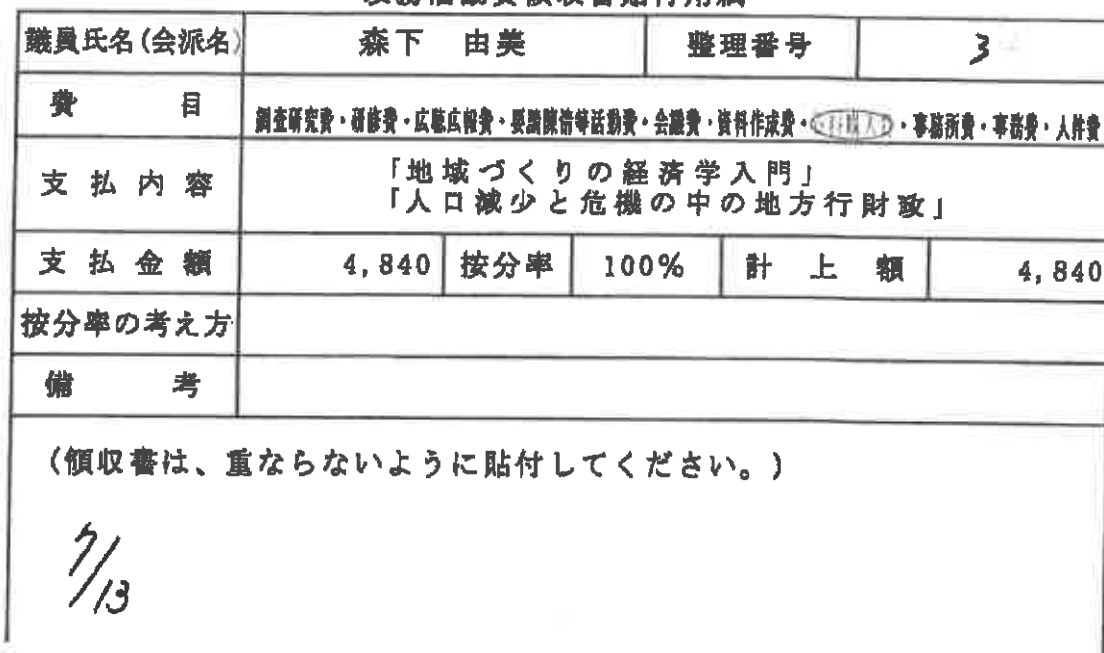 議員氏名(会派名) 森下 由美 整理番号 3
費 目 調査研究費・研修費・広聴広報費・要請陳情等活動費・会議費・資料作成費・資料購入費・事務所費・事務費・人件費
支払内容 「地域づくりの経済学入門」
「人口減少と危機の中の地方行財政」
支払金額 4,840 按分率 100% 計上額 4,840
按分率の考え方
備 考
(領収書は、重ならないように貼付してください。)
7/13